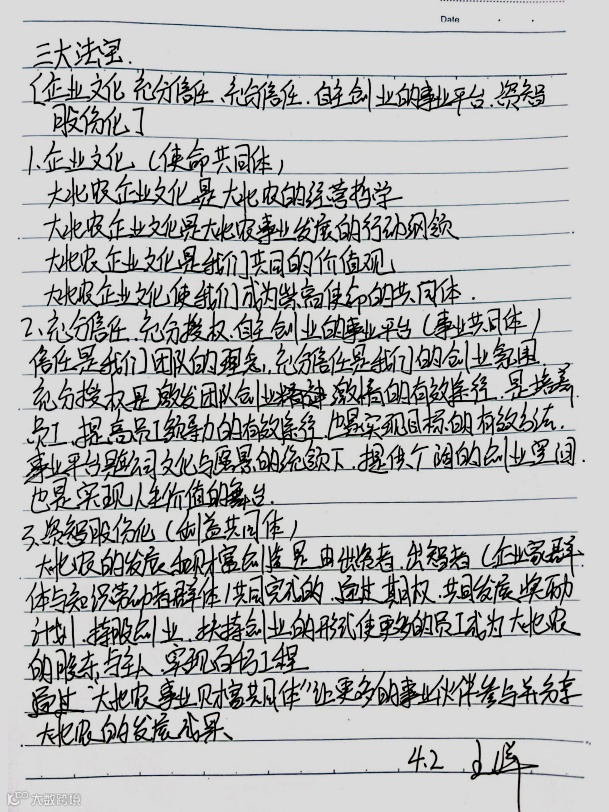 Date
三大法宝.
[企业文化 充分信任、充分信任.自主创业的事业平台.资智
股份化]
1.企业文化(使命共同体)
大北农企业文化是大北农的经营哲学
大北农企业文化是大北农事业发展的行动纲领
大北农企业文化是我们共同的价值观
大北农企业文化使我们成为崇高使命的共同体.
2、充分信任.充分授权.自主创业的事业平台(事业共同体)
信任是我们团队的理念,充分信任是我们的创业氛围.
充分授权是激发团队创业精神激情的有效途径.是培养
员工,提高员工领导力的有效途径,也是实现目标的有效方法.
事业平台是公司文化与愿景的统领下,提供广阔的创业空间
也是实现人生价值的舞台.
3、资智股份化(利益共同体)
大北农的发展和财富创造是由出资者.出智者(企业家群
体与知识劳动者群体)共同完成的.通过期权.共同发展奖励
计划.持股创业.扶持创业的形式使更多的员工成为大北农
的股东与主人.实现百千工程
通过"大北农事业财富共同体"让更多的事业伙伴参与并分享
大北农的发展成果、
4.2 王峰
大数跨境